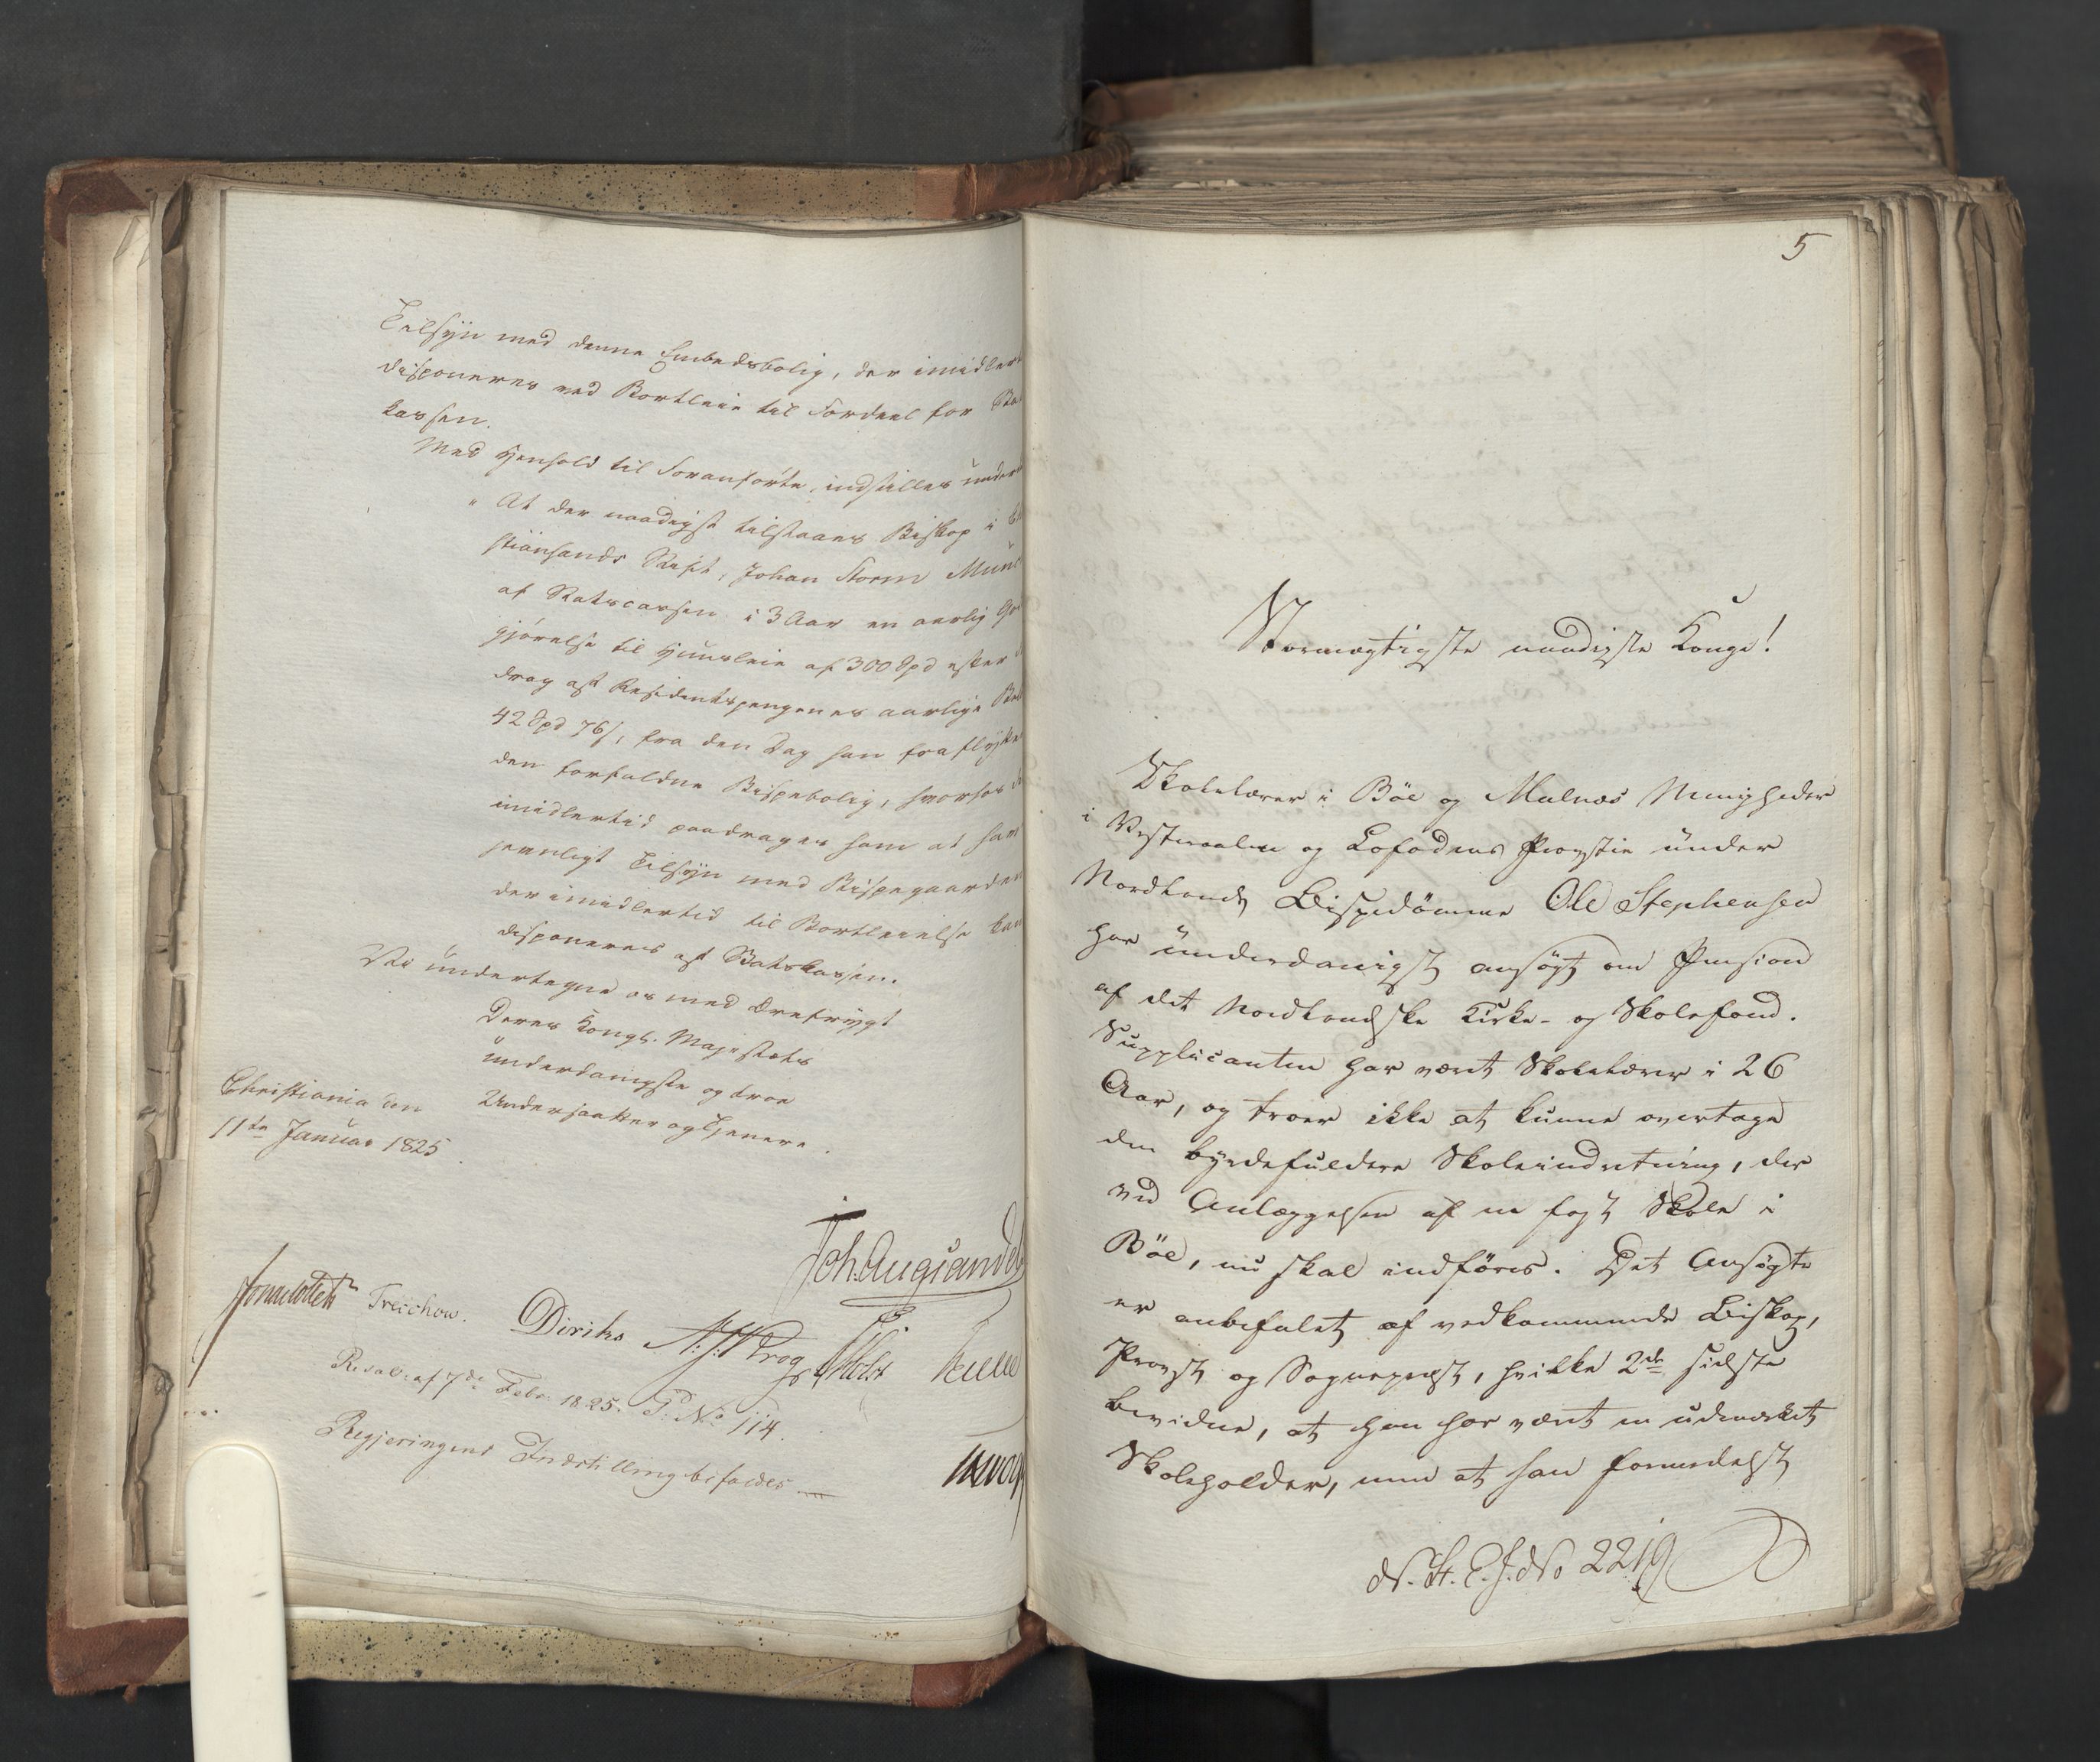 Tilsyn med denne Embedsbolig, der imidler
disponeres ved Bortleie til Fordeel for Sta
kassen.
Med Henhold til Foranførte indstilles under
" At der naadigst tilstaaes Biskop i Ch
stiansands Stift, Johan Storm Munc
af Statscassen i 3 Aar en aarlig Go
gjørelse til Huusleie af 300 Spd efter
drag af Residentspengenes aarlige Bel
42 Spd 76 s, fra den Dag han fraflytte
den forfaldne Bispebolig, hvorhos
imidlertid paadrages ham at have
jevnligt Tilsyn med Bispegaarden
der imidlertid til Bortleielse kan
disponeres af Statskassen.
Vi undertegne os med Ærefrygt
Deres Kongl. Majestæts
underdanigste og troe
Undersaatter og Tjenere.
Christiania den
11te Januar 1825.
Joh. Aug Sandel
Treschow. Diriks Krog Holst
Resol: af 7de Febr. 1825. P. No 114.
Regjeringens Indstilling bifaldes
5
Stormægtigste naadigste Konge!
Skolelærer i Böe og Malnæs Menigheder
i Vesteraalen og Lofodens Provstie under
Nordlands Bispedömme Ole Stephensen
har underdanigst ansøgt om Pension
af det Nordlandske Kirke- og Skolefond.
Supplicanten har været Skolelærer i 26
Aar, og troer ikke at kunne overtage
den byrdefuldere Skoleindretning, der
ved Anlæggelsen af en fast Skole i
Böe, nu skal indföres. Det Ansögte
er anbefalet af vedkommende Biskop,
Provst og Sognepræst, hvilke 2de sidste
bevidne, at han har været en udmærket
Skoleholder, men at han formedelst
No 2219